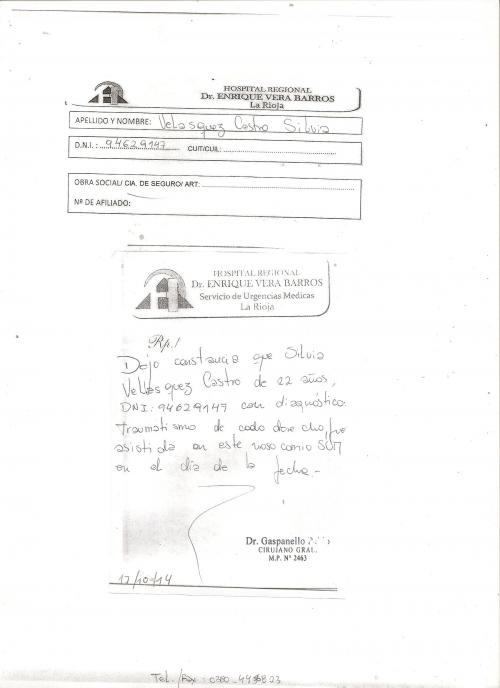 HOSPITAL REGIONAL
Dr. ENRIQUE VERA BARROS
La Rioja
APELLIDO Y NOMBRE: Velasquez Castro Silvia
D.N.I. : 94629147 CUIT/CUIL:
OBRA SOCIAL/ CIA. DE SEGURO/ ART:
Nº DE AFILIADO:
HOSPITAL REGIONAL
Dr. ENRIQUE VERA BARROS
Servicio de Urgencias Medicas
La Rioja
Rp./
Dejo constancia que Silvia
Velasquez Castro de 22 años,
DNI: 94629147 con diagnóstico:
Traumatismo de codo derecho, fue
asistida en este nosocomio SUM
en el día de la fecha.-
Dr. Gaspanello
CIRUJANO GRAL.
M.P. Nº 2463
12/10/14
Tel./Fax: 0380